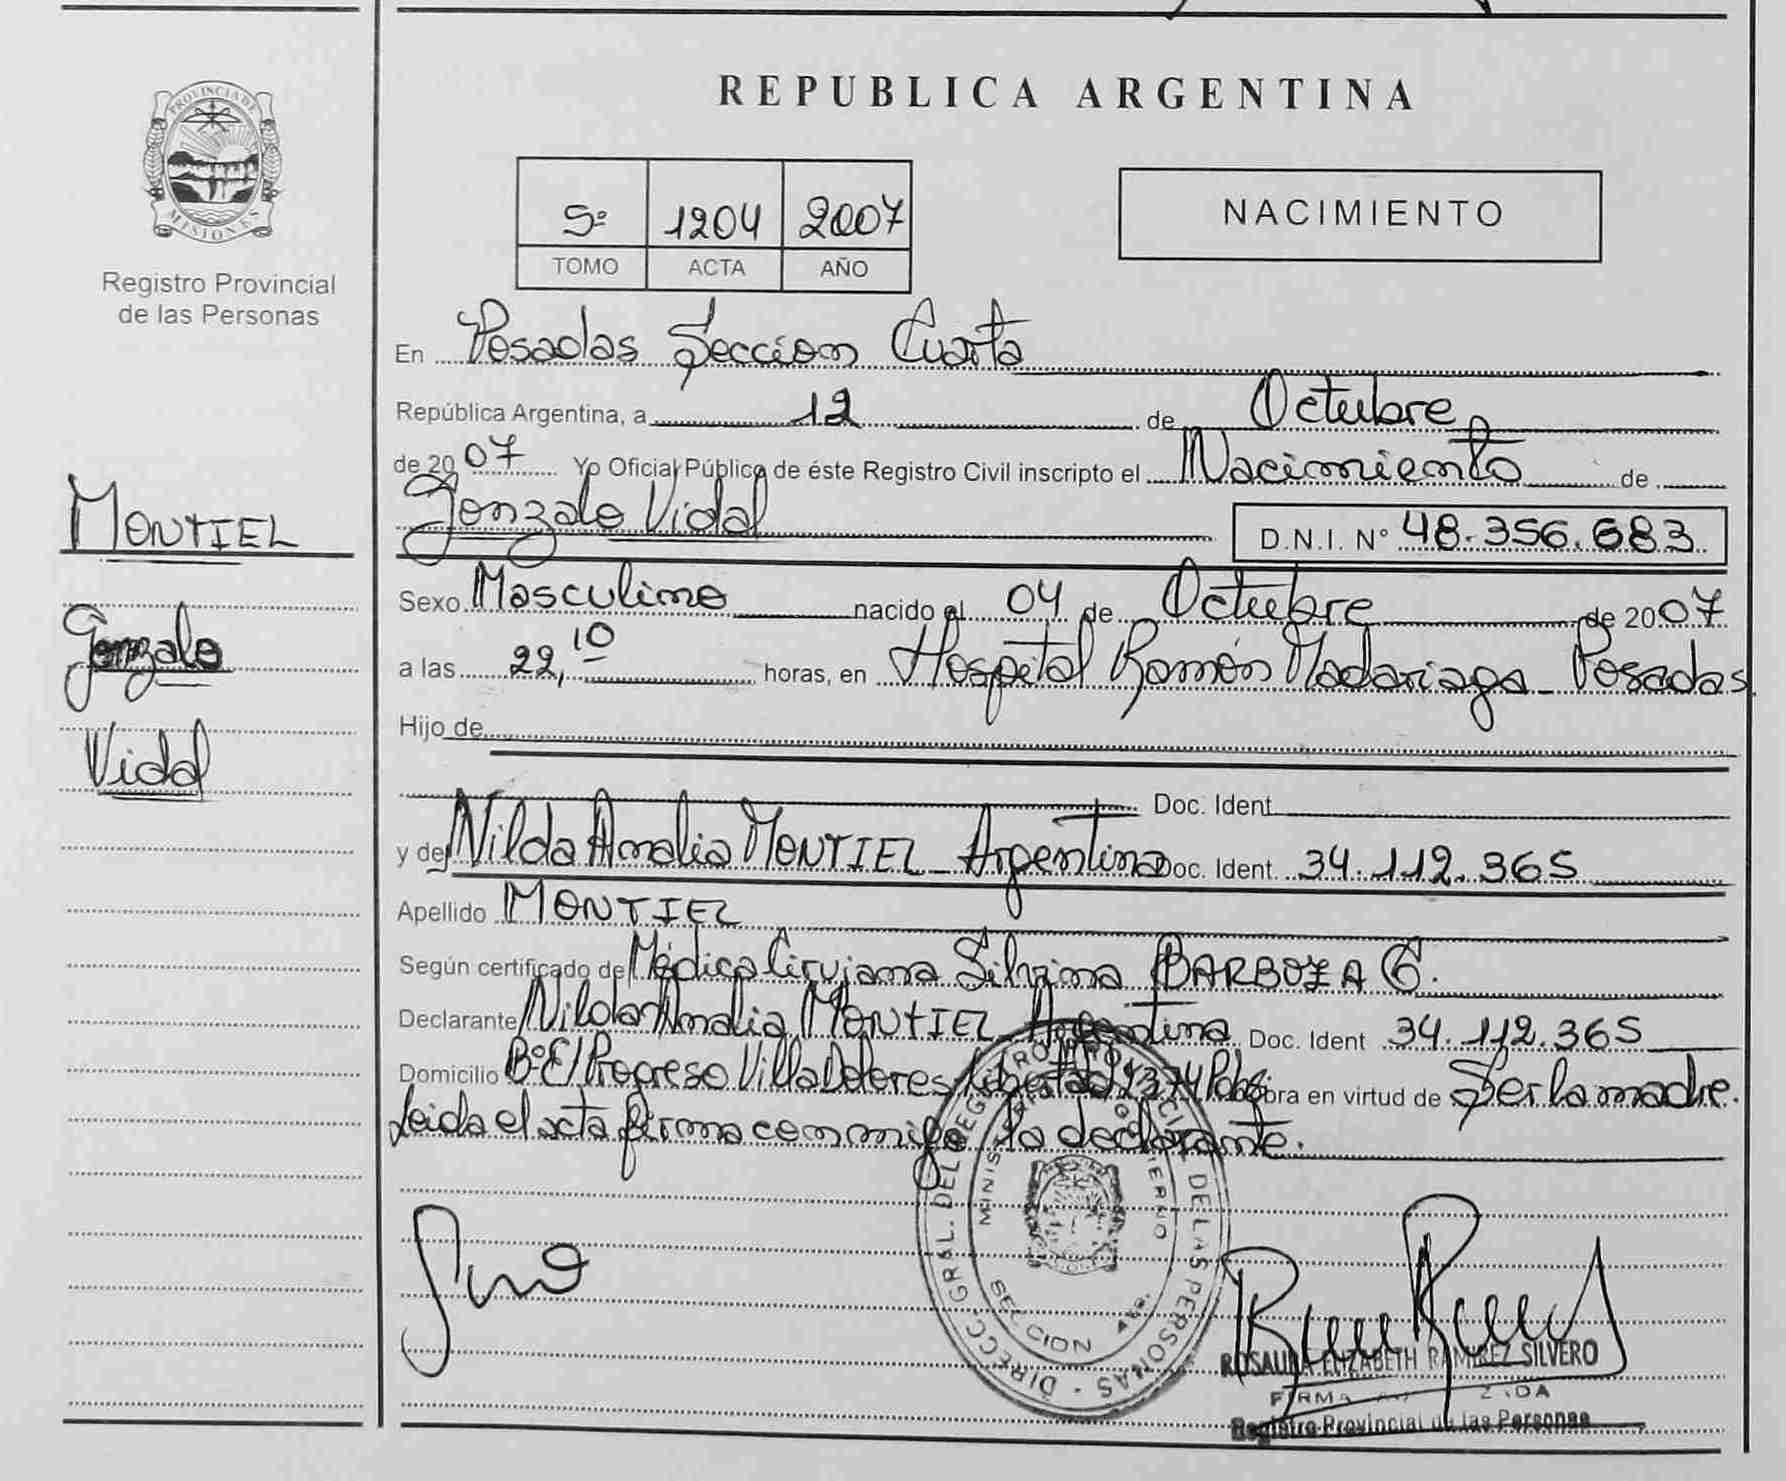 REPUBLICA ARGENTINA
PROVINCIA DE
MISIONES
Registro Provincial
de las Personas
5º 1204 2007
TOMO ACTA AÑO
NACIMIENTO
MONTIEL
Gonzalo
Vidal
En Posadas Sección Cuarta
República Argentina, a 12 de Octubre
de 2007 Yo Oficial Público de éste Registro Civil inscripto el Nacimiento de
Gonzalo Vidal D.N.I. Nº 48.356.683
Sexo Masculino nacido el 04 de Octubre de 2007
a las 22,10 horas, en Hospital Ramón Madariaga - Posadas
Hijo de
Doc. Ident
y de Nilda Amalia MONTIEL - Argentina Doc. Ident. 34.112.365
Apellido MONTIEL
Según certificado de Médica Cirujana Silvina BARBOZA G.
Declarante Nilda Amalia MONTIEL - Argentina Doc. Ident 34.112.365
Domicilio Bº El Progreso Villa Dolores Libertad obra en virtud de Ser la madre.
Leida el acta firma conmigo la declarante.
DIRECC. GRAL. DEL REGISTRO PROVINCIAL DE LAS PERSONAS
SECCION 4ta.
ROSAURA ELIZABETH RAMIREZ SILVERO
Registro Provincial de las Personas